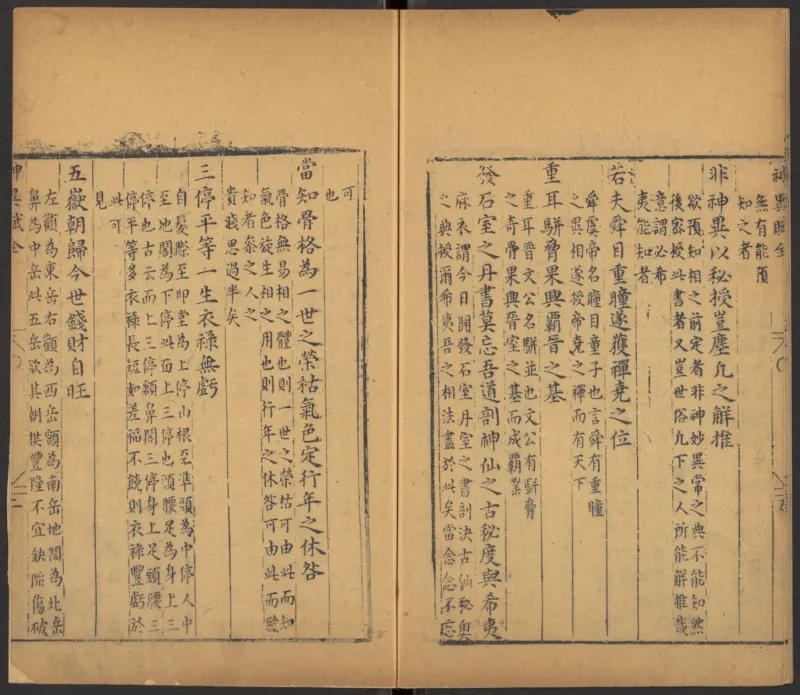 神異賦全
無有能預
知之者
非神異以秘授豈塵凡之解推
欲預知相之前定者非神妙異常之典不能知然
後家授此書者又豈世俗凡下之人所能解推哉
意謂必希
夷能知者
若夫舜目重瞳遂獲禪堯之位
舜虞帝名瞳目童子也言舜有重瞳
之異相遂授帝堯之禪而有天下
重耳駢脅果興霸晉之基
重耳晉文公名駢並也文公有駢脅
之奇骨果興晉室之基而成霸業
發石室之丹書莫忘吾道剖神仙之古秘度與希夷
麻衣謂今日開發石室丹室之書剖決古仙秘奧
之典授爾希夷吾之相法盡於此矣當念念不忘
可
也
當知骨格為一世之榮枯氣色定行年之休咎
骨格無易相之體也則一世之榮枯可由此而知
氣色旋生相之用也則行年之休咎可由此而驗
知者參之人之
貴賤思過半矣
三停平等一生衣祿無虧
自髮際至印堂為上停山根至準頭為中停人中
至地閣為下停此面上三停也頭腰足為身上三
停也古云面上三停額鼻閣三停身上足頭腰三
停平等多衣祿長短如差福不饒則衣祿豐虧於
此可
見
五嶽朝歸今世錢財自旺
左顴為東岳右顴為西岳額為南岳地閣為北岳
鼻為中岳此五岳欲其朝拱豐隆不宜缺陷傷破
神異賦全